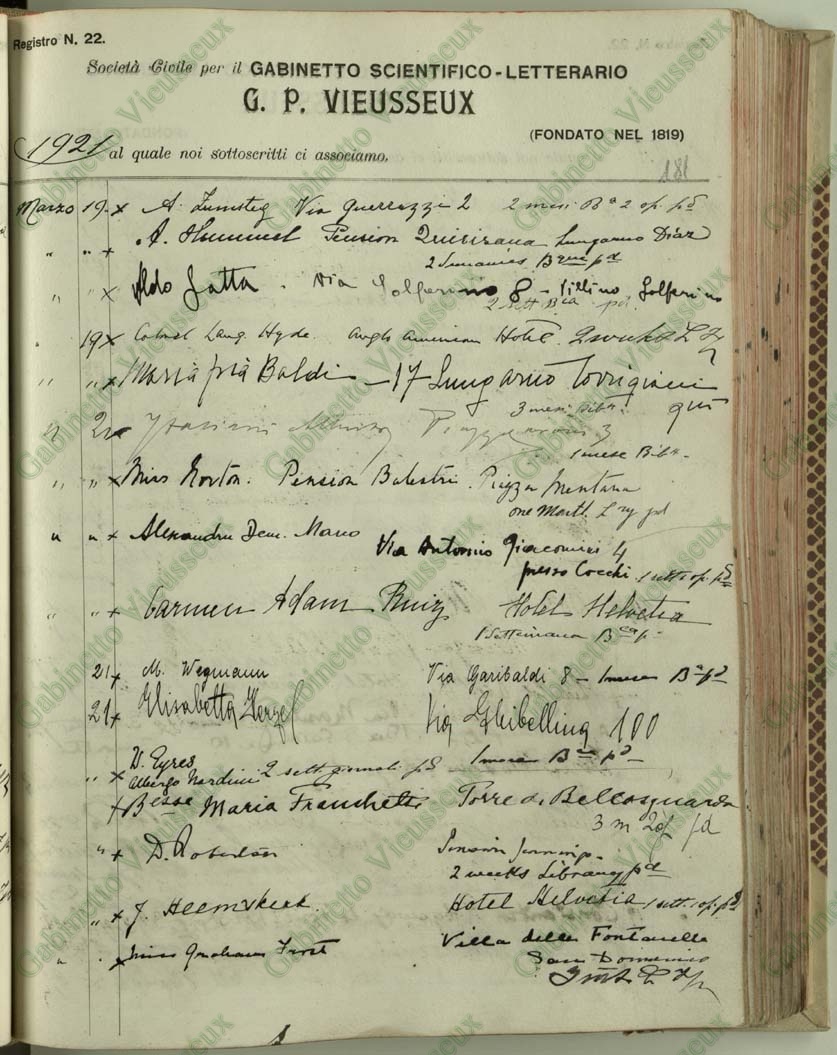 Registro N. 22.
Società Civile per il GABINETTO SCIENTIFICO-LETTERARIO
G. P. VIEUSSEUX
(FONDATO NEL 1819)
1921 al quale noi sottoscritti ci associamo.
181
Marzo 19 x A. Zumsteg Via Guerrazzi 2 2 mesi Bª 2 op. pd
" " x A. Hummel Pension Quisisana Lungarno Diaz
2 Semaines pd
" " x Aldo Gatta. Via Solferino 8 - Villino Solferino
2 sett. Bca pd.
" 19 x Colonel Lang Hyde. Anglo American Hotel. 2 weeks
" " x Maria Pia Baldi - 17 Lungarno Torrigiani
3 mesi Bibª. qui
" 21 x
1 mese Bibª.
" " x Miss Norton. Pension Balestri. Piazza Mentana
one Month. pd
" " x Alexandru Dem. Mano Via Antonio Giacomini 4
presso Cocchi. 1 sett. 1 op. pd
" " x Carmen Adam Ruiz Hotel Helvetia
1 Settimana Bca p.
21 x M. Wegmann Via Garibaldi 8 - 1 mese Bª pd
21 x Elisabetta Herzel Via Ghibellina 100
1 mese pd
" x D. Eyres
Albergo Nardini 2 sett. giornali pd
x Bsse Maria Franchetti Torre di Bellosguardo
3 m 2 of pd
" x D. Robertson
2 weeks Library pd
" x J. Heemskerk. Hotel Helvetia 1 sett. 1 op. pd
" " x Miss Graham Frost Villa delle Fontanelle
San Domenico
Gabinetto Vieusseux